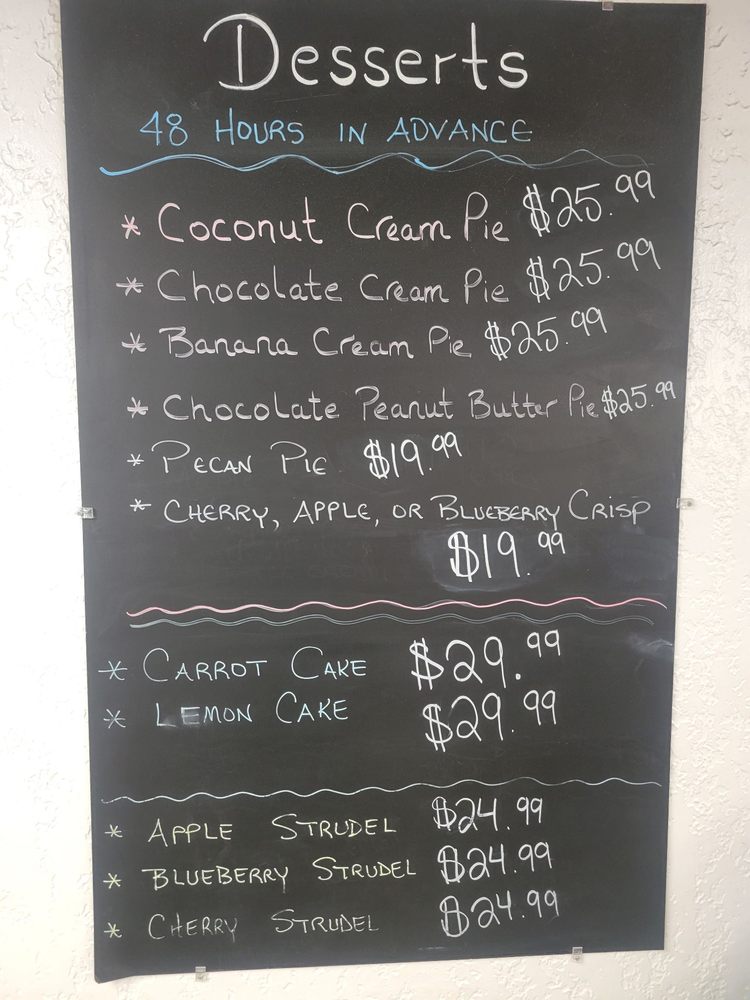 Desserts
48 HOURS IN ADVANCE
* Coconut Cream Pie $25.99
* Chocolate Cream Pie $25.99
* Banana Cream Pie $25.99
* Chocolate Peanut Butter Pie $25.99
* PECAN PIE $19.99
* CHERRY, APPLE, OR BLUEBERRY CRISP
$19.99
* CARROT CAKE $29.99
* LEMON CAKE $29.99
* APPLE STRUDEL $24.99
* BLUEBERRY STRUDEL $24.99
* CHERRY STRUDEL $24.99